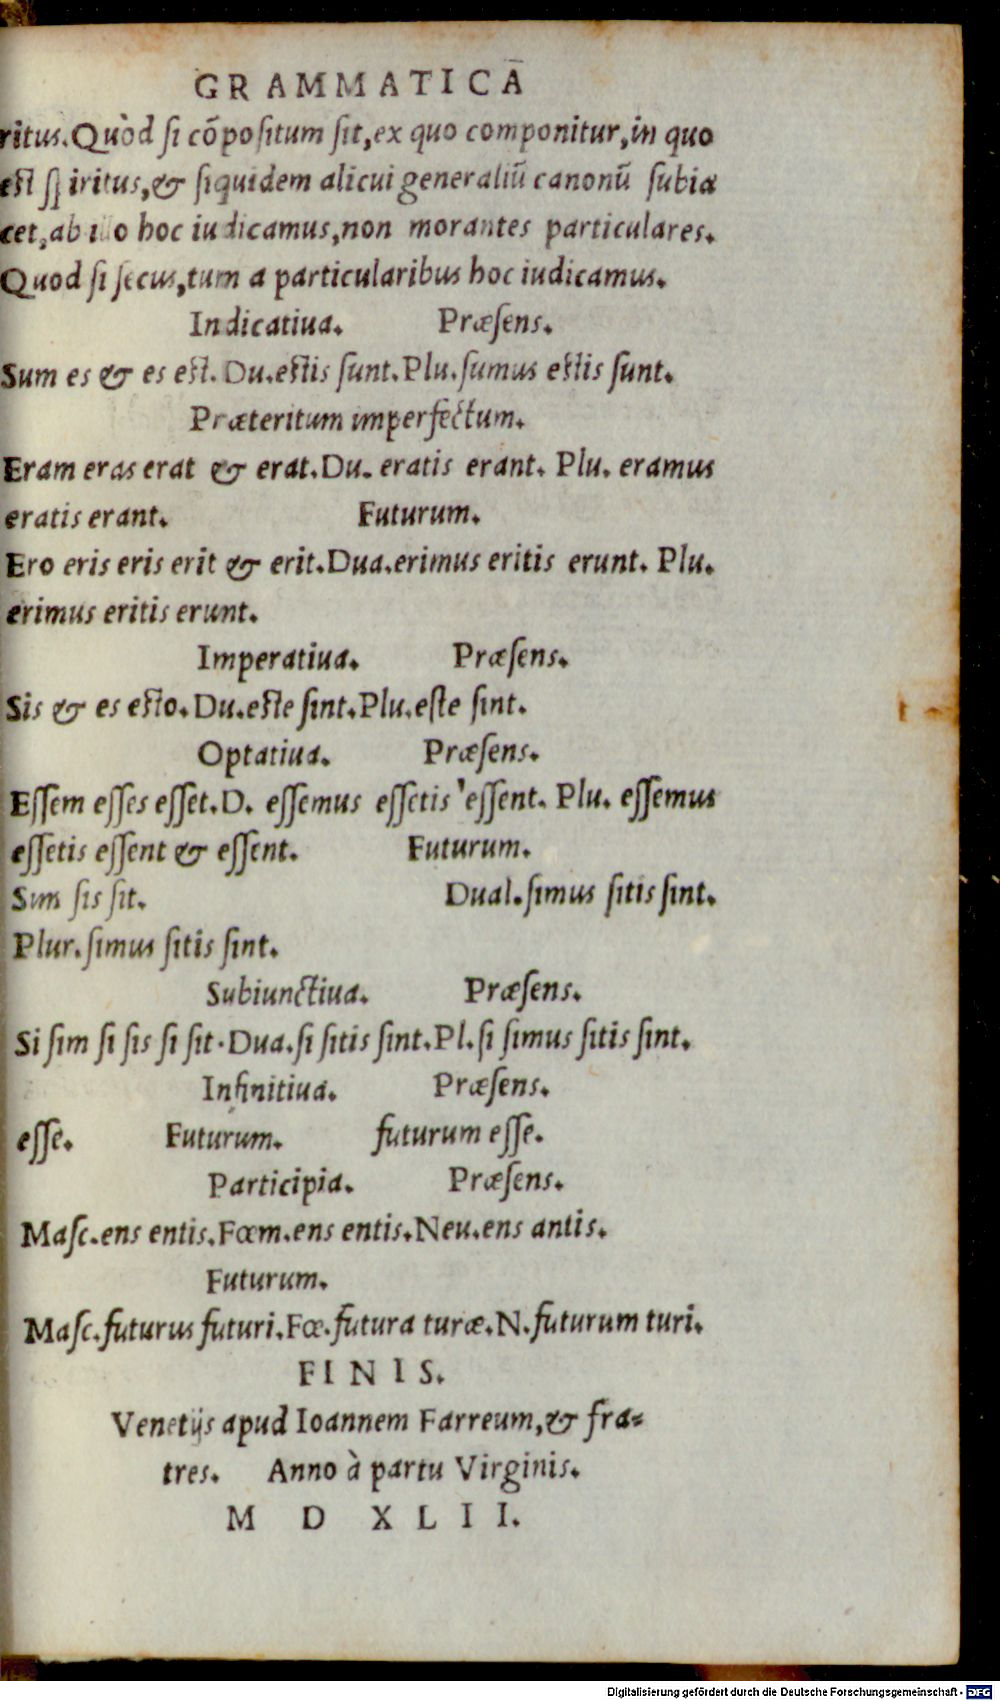 GRAMMATICĀ
ritus. Quòd ſi cõpoſitum ſit, ex quo componitur, in quo
eſt ſpiritus, & ſiquidem alicui generaliũ canonũ ſubia
cet, ab illo hoc iudicamus, non morantes particulares.
Quod ſi ſecus, tum a particularibus hoc iudicamus.
Indicatiua. Præſens.
Sum es & es eſt. Du. eſtis ſunt. Plu. ſumus eſtis ſunt.
Præteritum imperfectum.
Eram eras erat & erat. Du. eratis erant. Plu. eramus
eratis erant. Futurum.
Ero eris eris erit & erit. Dua. erimus eritis erunt. Plu.
erimus eritis erunt.
Imperatiua. Præſens.
Sis & es eſto. Du. eſte ſint. Plu. eſte ſint.
Optatiua. Præſens.
Eſſem eſſes eſſet. D. eſſemus eſſetis 'eſſent. Plu. eſſemus
eſſetis eſſent & eſſent. Futurum.
Sim ſis ſit. Dual. ſimus ſitis ſint.
Plur. ſimus ſitis ſint.
Subiunctiua. Præſens.
Si ſim ſi ſis ſi ſit. Dua. ſi ſitis ſint. Pl. ſi ſimus ſitis ſint.
Infinitiua. Præſens.
eſſe. Futurum. futurum eſſe.
Participia. Præſens.
Maſc. ens entis. Fœm. ens entis. Neu. ens antis.
Futurum.
Maſc. futurus futuri. Fœ. futura turæ. N. futurum turi.
FINIS.
Venetijs apud Ioannem Farreum, & fra=
tres. Anno à partu Virginis.
M D X L I I.
Digitalisierung gefördert durch die Deutsche Forschungsgemeinschaft - DFG